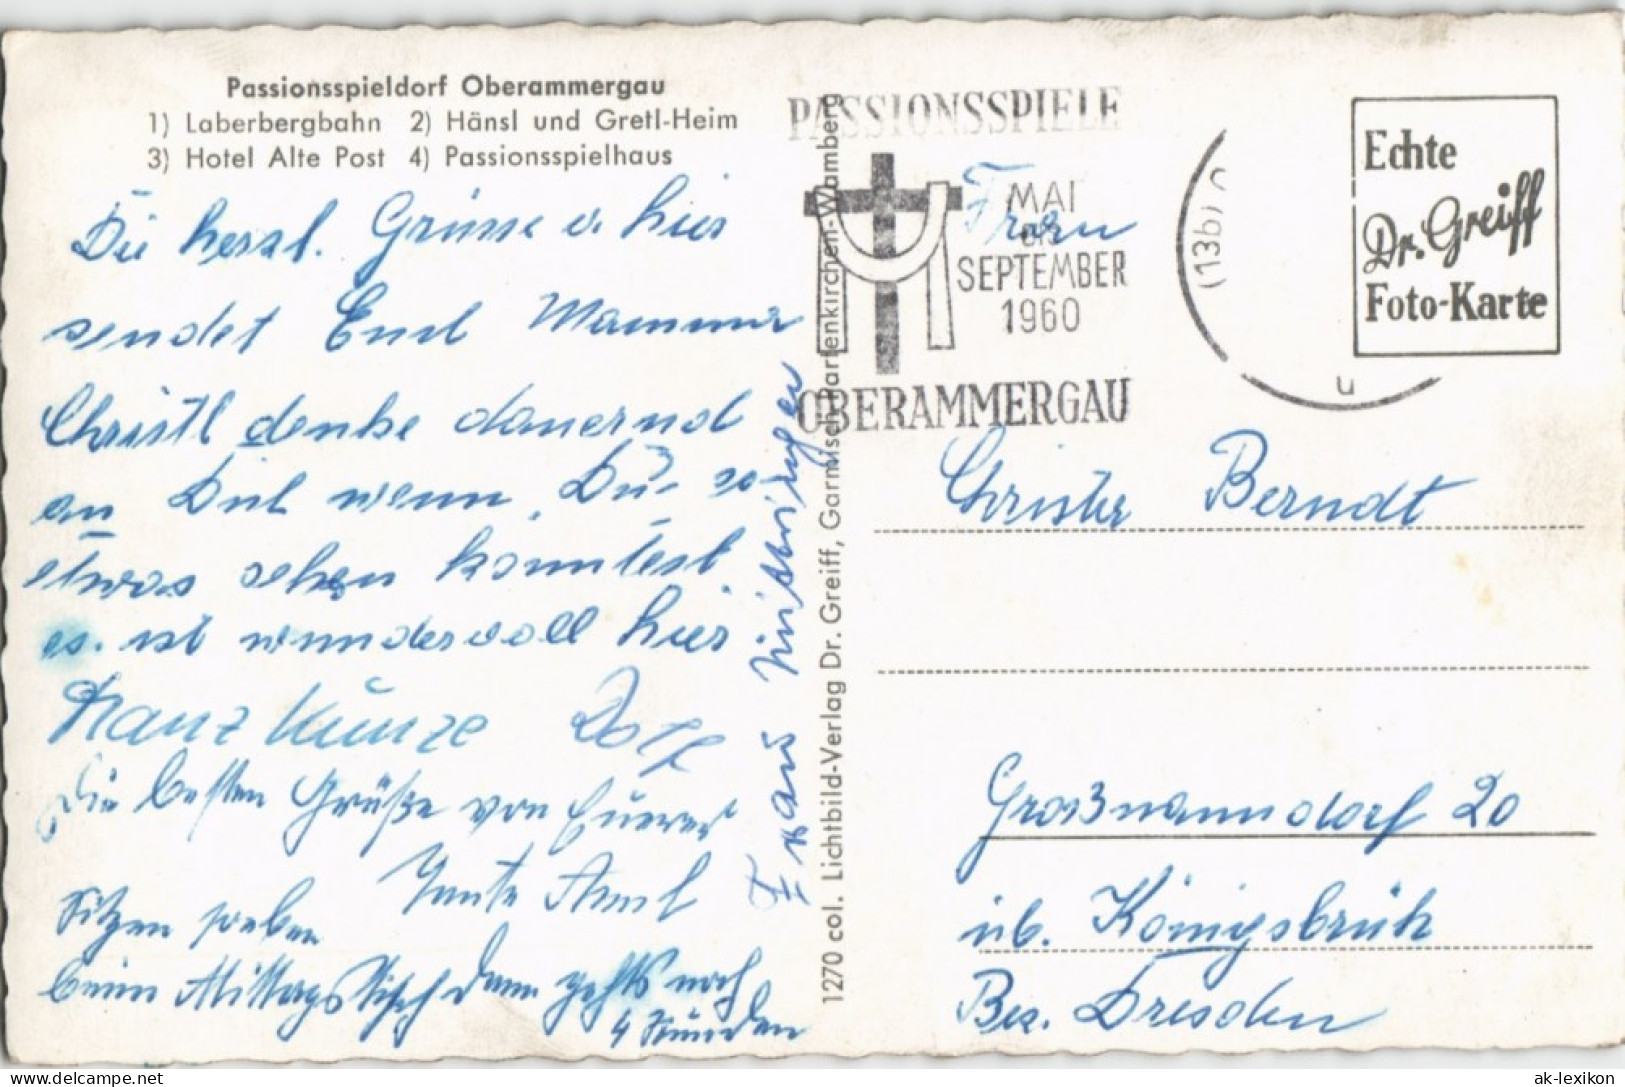 Passionsspieldorf Oberammergau
1) Laberbergbahn 2) Hänsl und Gretl-Heim
3) Hotel Alte Post 4) Passionsspielhaus
herzl. Grüsse v. hier
sendet Euch
Christl denke dauernd
an Dich wenn Du so
etwas sehen könntest
es ist wundervoll hier
Kunze
Die besten Grüße von Euerer
Tante
Sitzen soeben
beim Mittagstisch dann gehts noch
4 Stunden
1270 col. Lichtbild-Verlag Dr. Greiff, Garmisch-Partenkirchen-Wamberg
PASSIONSSPIELE
MAI
BIS
SEPTEMBER
1960
OBERAMMERGAU
(13b)
Echte
Dr. Greiff
Foto-Karte
Frau
Berndt
Großmanndorf 20
üb. Königsbrück
Bez. Dresden
ak-lexikon
www.delcampe.net